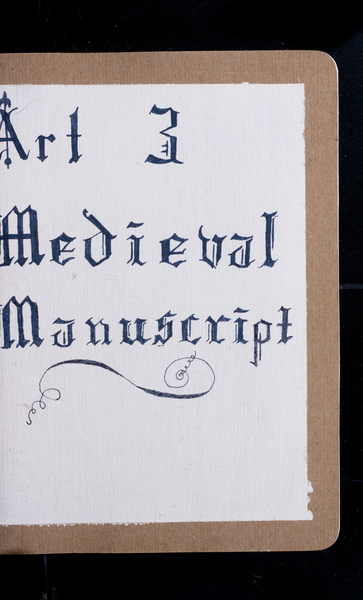 Art 3
Medieval
Manuscript